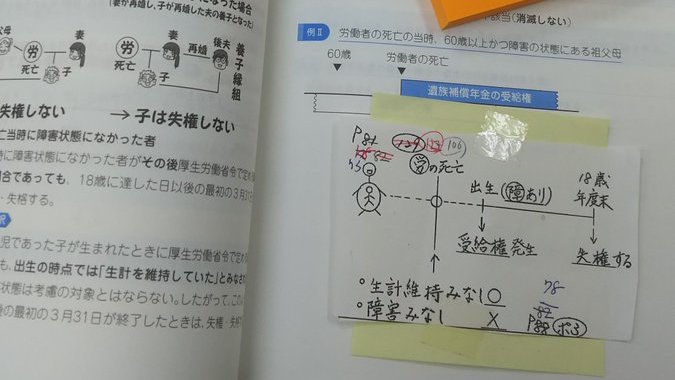 なった場合
(妻が再婚し、子が再婚した夫の養子となった)
父母
労
死亡
妻
子
労
死亡
妻
子
再婚
後夫
養子縁組
失権しない
→子は失権しない
亡当時に障害状態になかった者
時に障害状態になかった者がその後厚生労働省令で定め
場合であっても、18歳に達した日以後の最初の3月31
・失格する。
児であった子が生まれたときに厚生労働省令で定め
も、出生の時点では「生計を維持していた」とみなさ
状態は考慮の対象とはならない。したがって、この
の最初の3月31日が終了したときは、失権・失格
(消滅しない)
例Ⅱ
労働者の死亡の当時、60歳以上かつ障害の状態にある祖父母
60歳
労働者の死亡
遺族補償年金の受給権
P81
106
労の死亡
出生(障あり)
18歳
年度末
受給権発生
失権する
○生計維持みなし○
○障害みなし ×
78
82
P88 ポ3